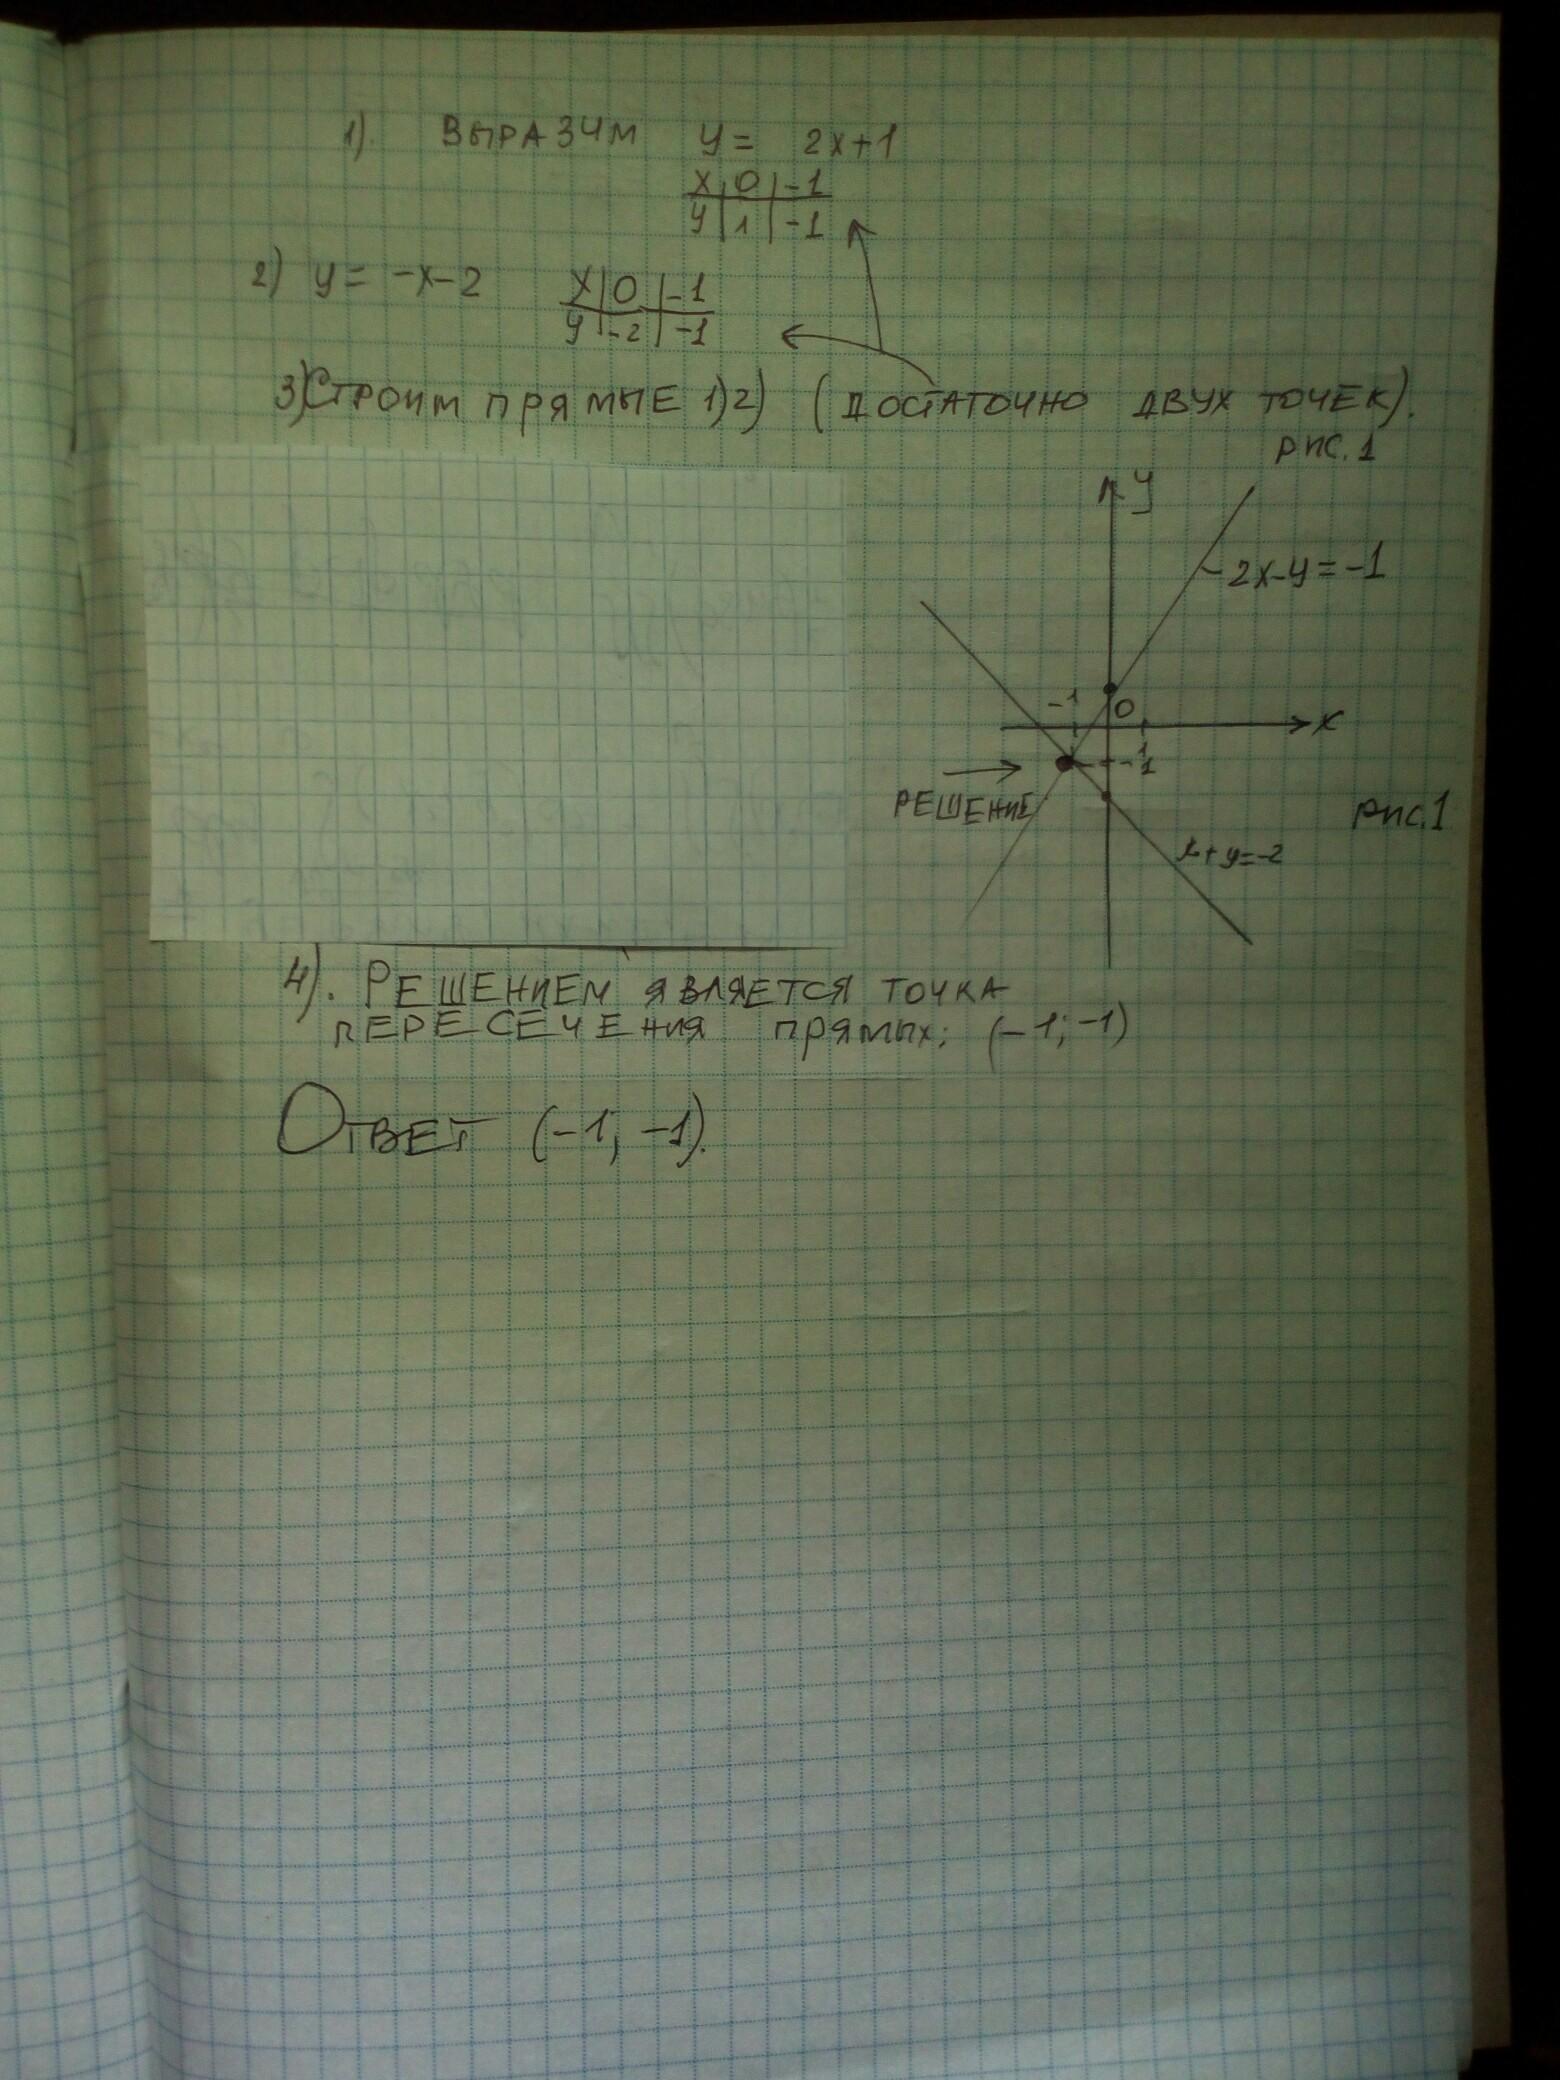 1). ВЫРАЗИМ y = 2x+1
x | 0 | -1
y | 1 | -1
2) y = -x-2
x | 0 | -1
y | -2 | -1
3) СТРОИМ ПРЯМЫЕ 1)2) (ДОСТАТОЧНО ДВУХ ТОЧЕК).
РИС. 1
y
2x-y=-1
-1
0
x
1
-1
РЕШЕНИЕ
РИС.1
x+y=-2
4). РЕШЕНИЕМ ЯВЛЯЕТСЯ ТОЧКА
ПЕРЕСЕЧЕНИЯ ПРЯМЫХ: (-1; -1)
ОТВЕТ (-1; -1).